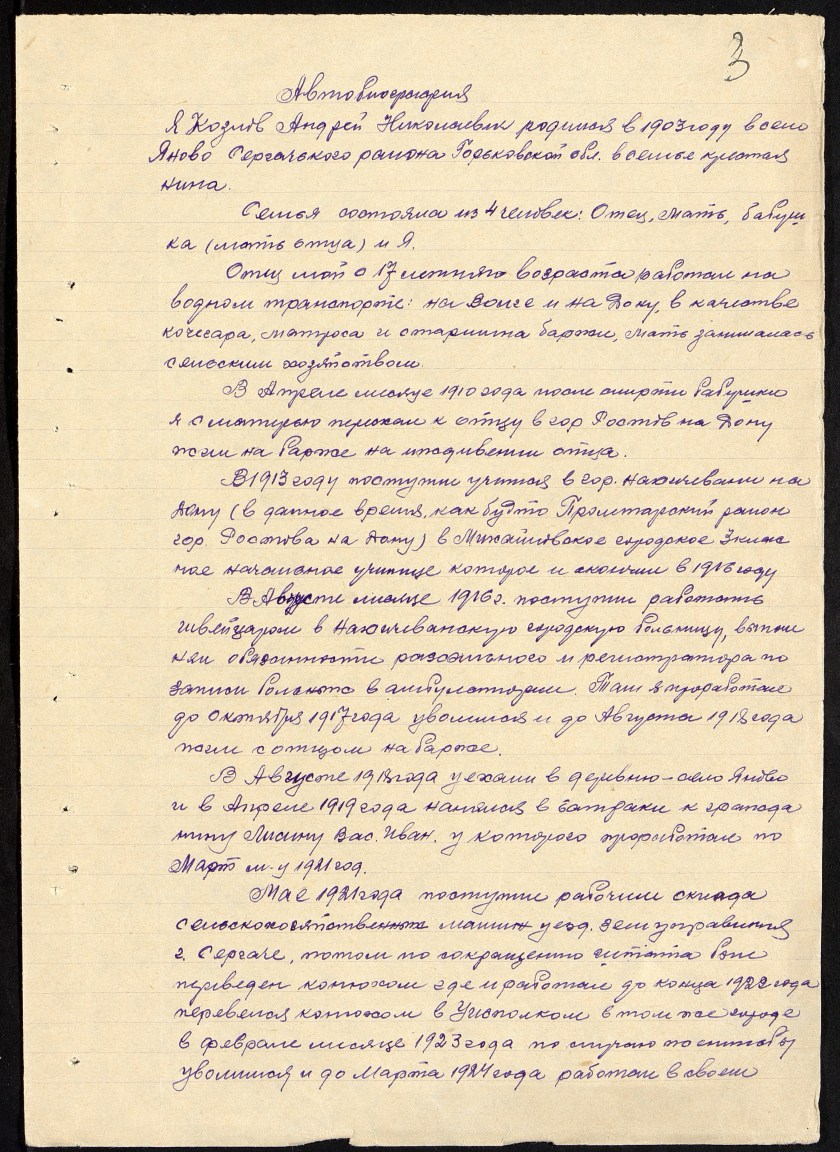 3
Автобиография
Я Козлов Андрей Николаевич родился в 1903 году в село
Яново Сергачького района Горьковской обл. в семье крестья
нина.
Семья состояла из 4 человек: Отец, мать, бабуш
ка (мать отца) и Я.
Отец мой с 17 летнего возраста работал на
водном транспорте: на Волге и на Дону, в качестве
кочегара, матроса и старшина баржи, мать занималась
сельским хозяйством.
В Апреле месяце 1910 года после смерти бабушки
я с матерью переехал к отцу в гор Ростов на Дону
жили на барже на иждивении отца.
В 1913 году поступил учится в гор. Нахичевани на
Дону (в данное время, как будто Пролетарский район
гор. Ростова на Дону) в Михайловское городское 3 клас
ное начальное училище которое и окончил в 1916 году
В Августе месяце 1916 г. поступил работать
швейцаром в Нахичеванскую городскую больницу, выпол
нял обязанности рассыльного и регистратора по
записи больных в амбулатории. Там я проработал
до октября 1917 года уволился и до Августа 1918 года
жил с отцом на барже.
В Августе 1918 года уехали в деревню - село Яново
и в Апреле 1919 года нанялся в батраки к гражда
нину Лисину Вас. Иван. у которого проработал по
Март м-ц 1921 год.
Мае 1921 года поступил рабочим склада
сельскохозяйственных машин уезд. зем управления
г. Сергаче, потом по сокращению штата был
переведен конюхом где и работал до конца 1922 года
перевелся конюхом в Уисполком в том же городе
в феврале месяце 1923 года по случаю женитьбы
уволился и до Марта 1924 года работал в своем